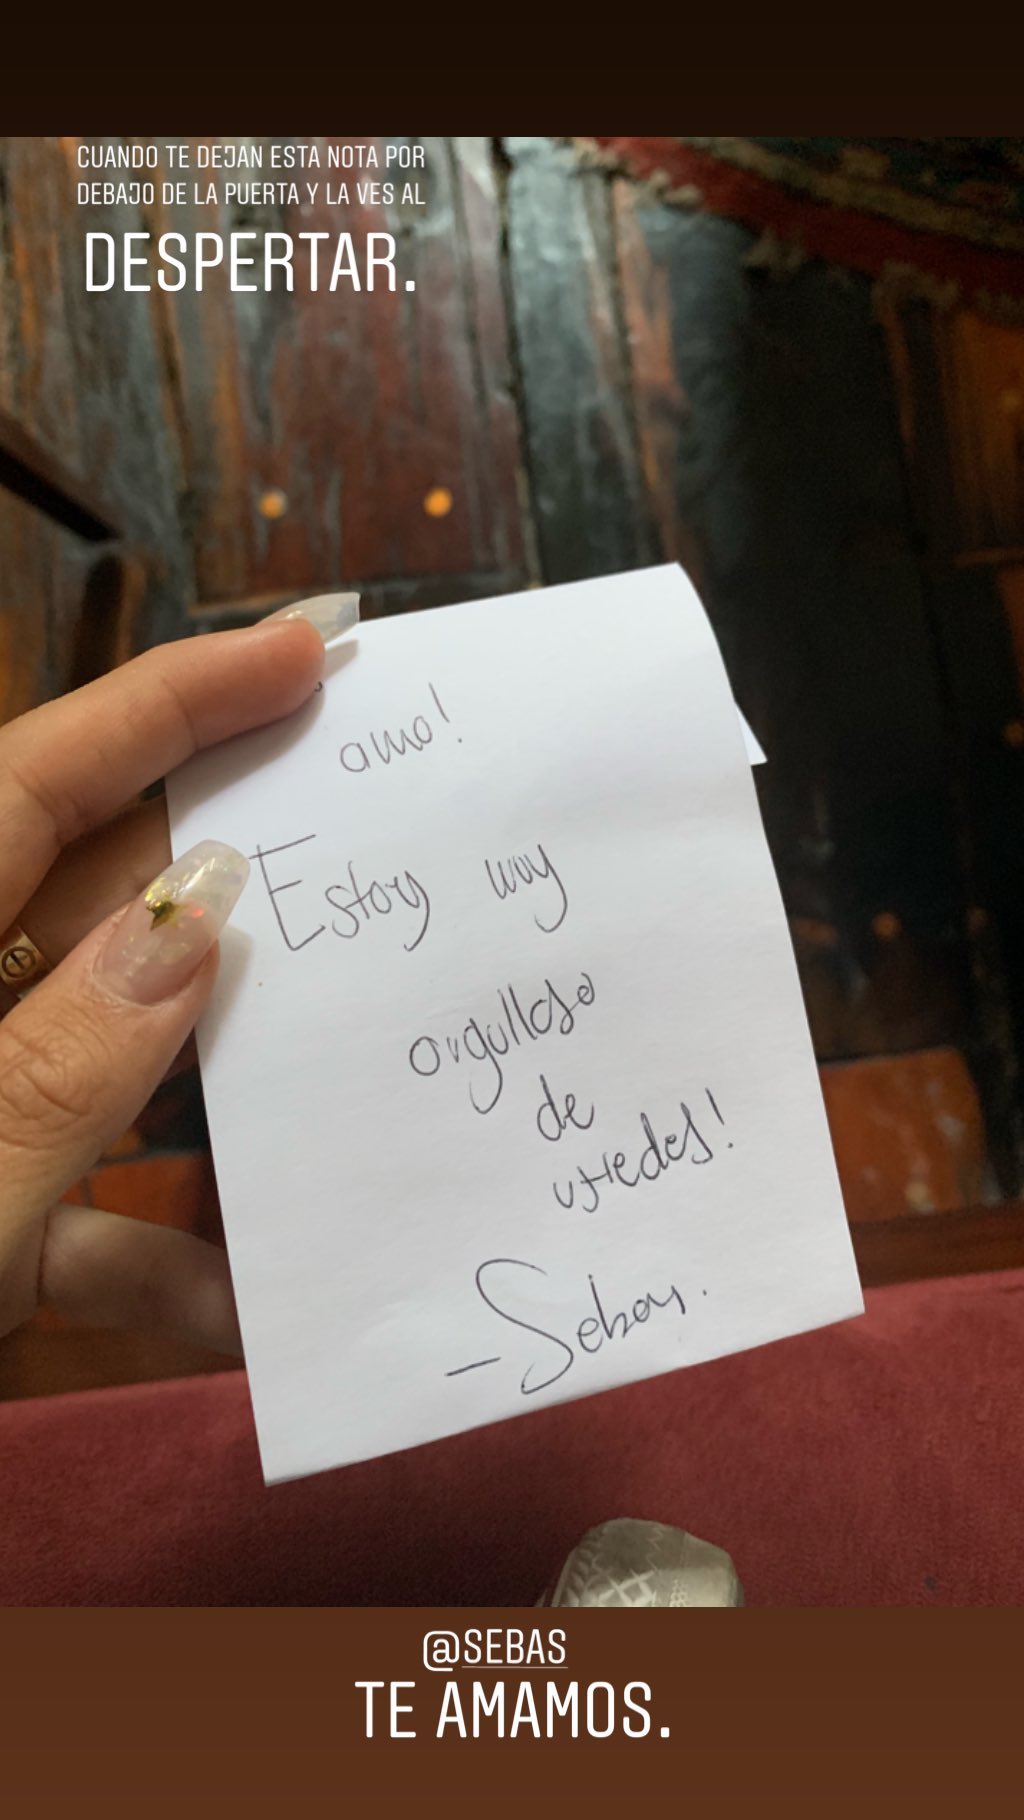 CUANDO TE DEJAN ESTA NOTA POR
DEBAJO DE LA PUERTA Y LA VES AL
DESPERTAR.
amo!
Estoy muy
orgulloso
de
ustedes!
-Sebas.
@SEBAS
TE AMAMOS.